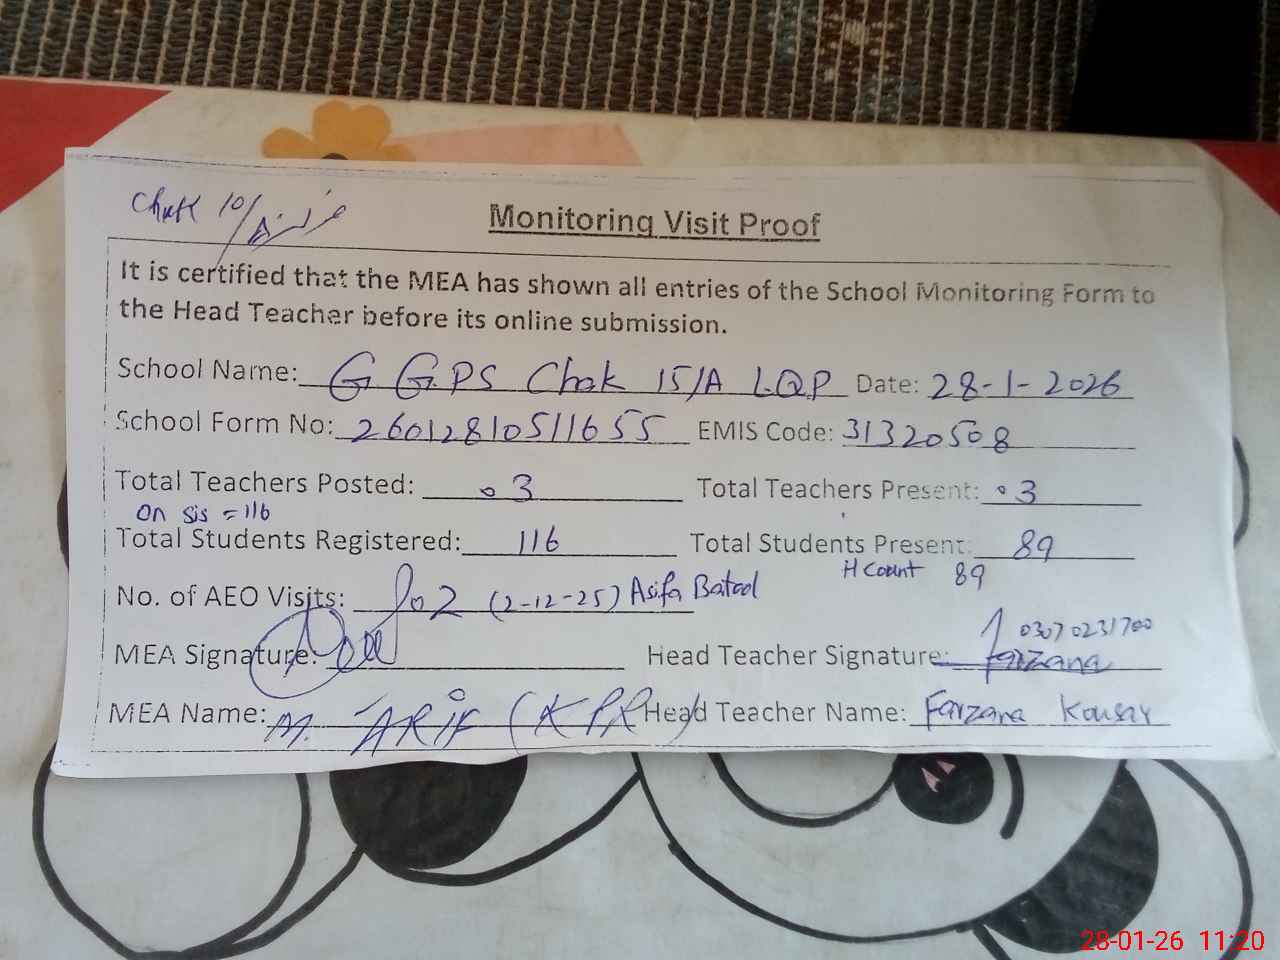 Chak 10/
Monitoring Visit Proof
It is certified that the MEA has shown all entries of the School Monitoring Form to
the Head Teacher before its online submission.
School Name: G GPS Chak 15/A LQP Date: 28-1-2026
School Form No: 26012810511655 EMIS Code: 31320508
Total Teachers Posted: 03 Total Teachers Present: 03
On sis = 116
Total Students Registered: 116 Total Students Present: 89
H Count 89
No. of AEO Visits: 02 (2-12-25) Asifa Batool
03070231700
MEA Signature: Head Teacher Signature: Farzana
MEA Name: M. ARIF (KPR) Head Teacher Name: Farzana Kousar
28-01-26 11:20